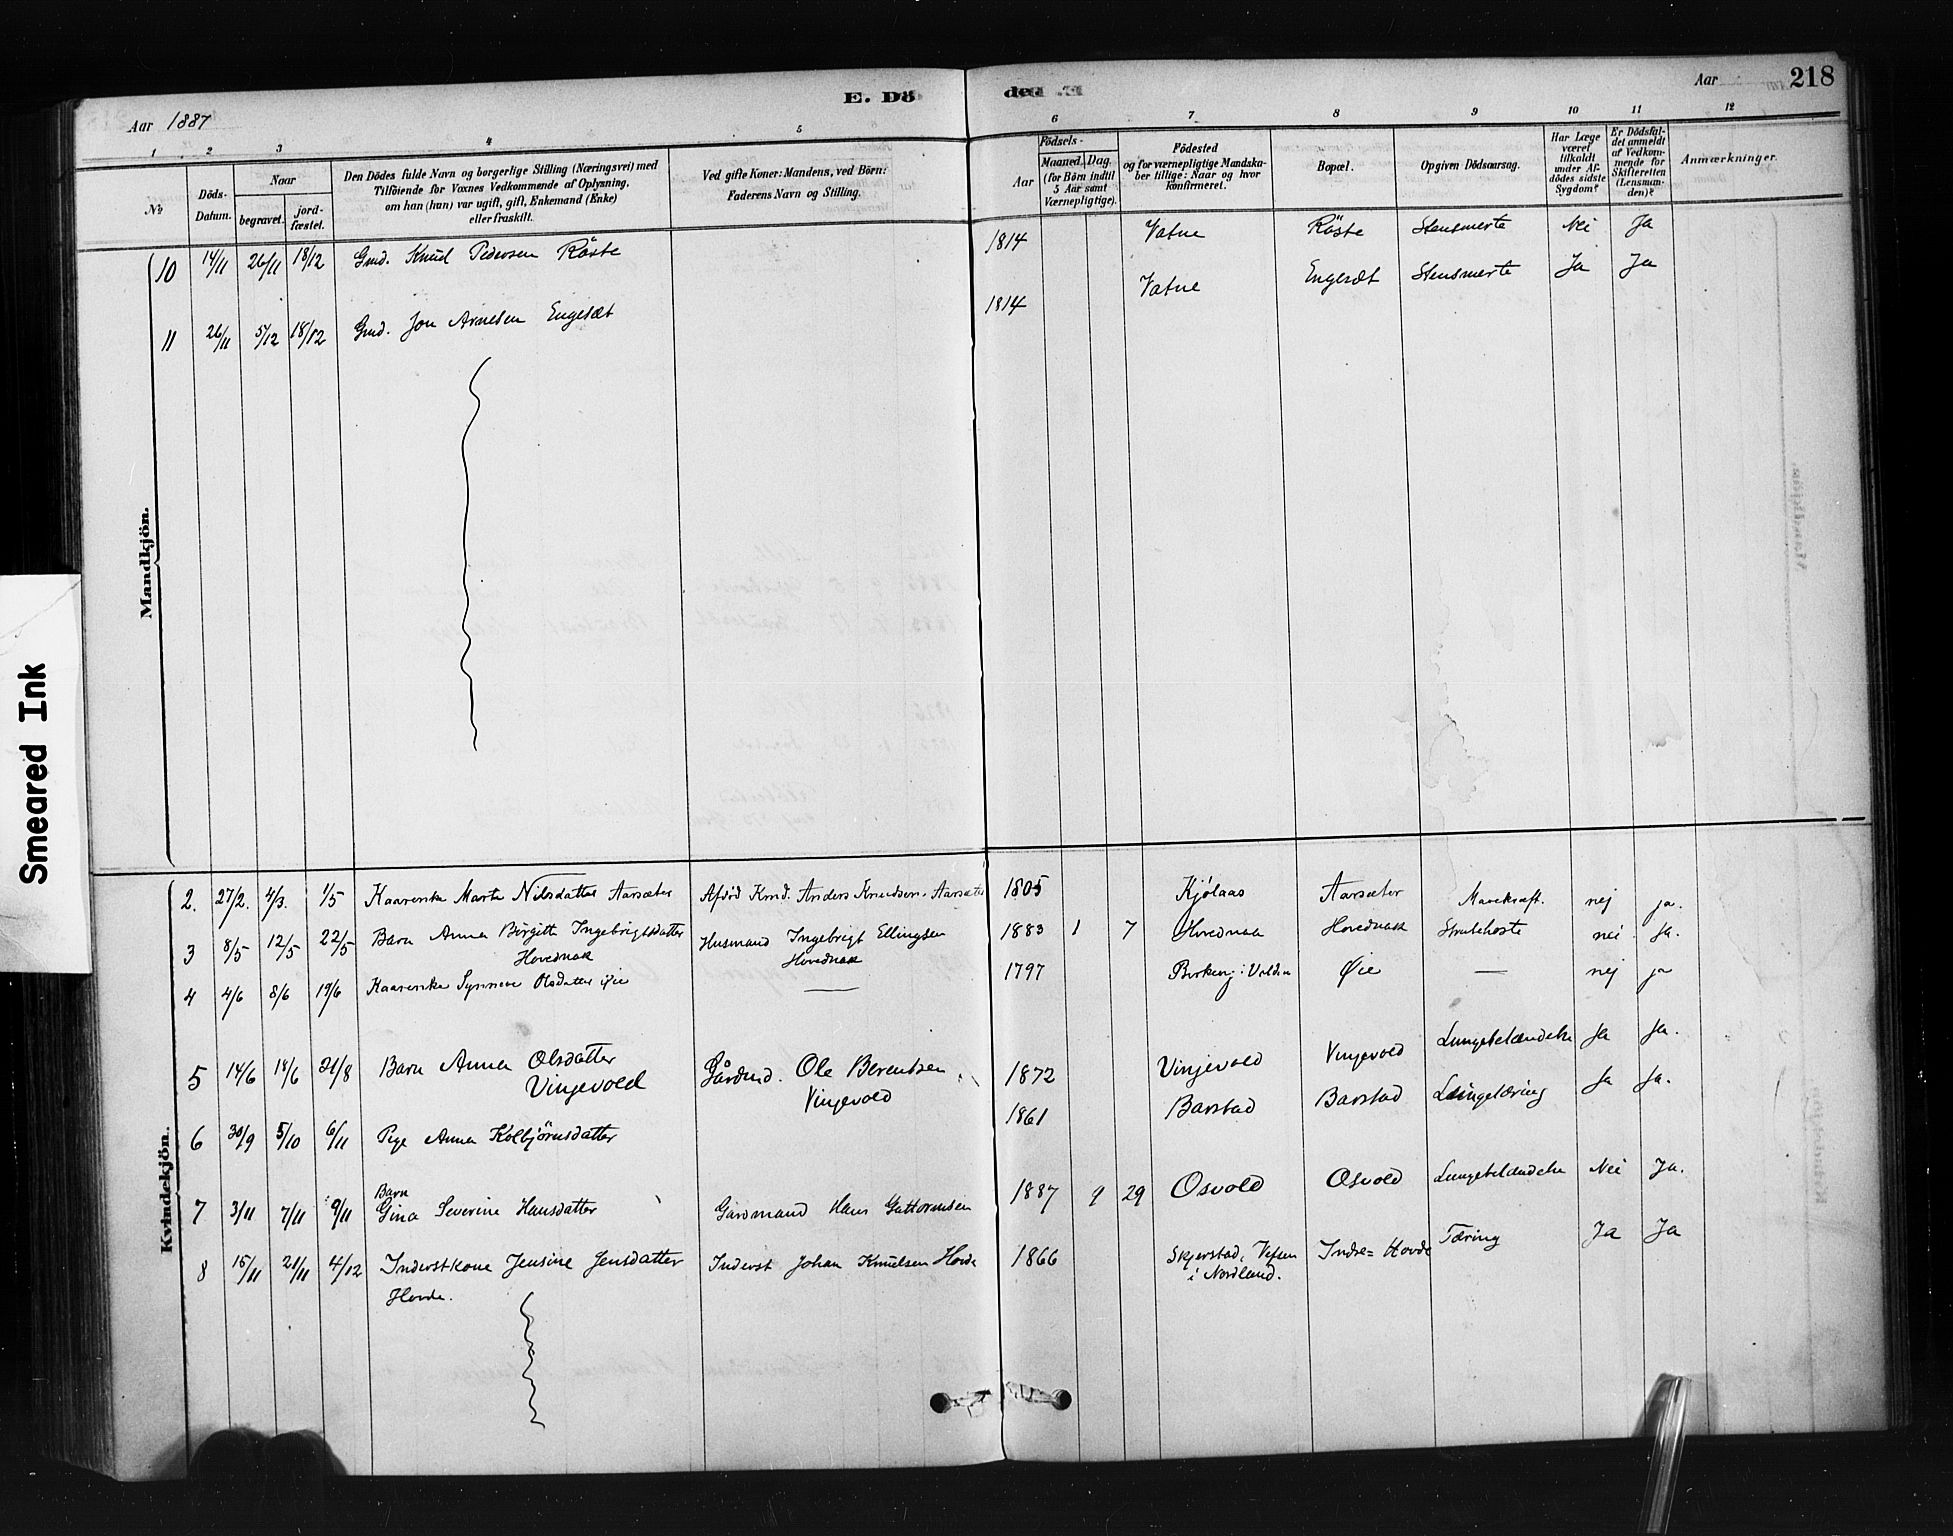 E. Dö
den E.
Aar 1887
Aar
218
1 2 3 4 5 6 7 8 9 10 11 12
No
Döds-Datum.
Naar
begravet.
jord-fæstet.
Den Dödes fulde Navn og borgerlige Stilling (Næringsvei) med
Tilföiende for Voxnes Vedkommende af Oplysning,
om han (hun) var ugift, gift, Enkemand (Enke)
eller fraskilt.
Ved gifte Koner: Mandens, ved Börn:
Faderens Navn og Stilling.
Födsels-
Aar
Maaned. Dag.
(for Börn indtil
5 Aar samt
Værnepligtige).
Födested
og for værnepligtige Mandska-
ber tillige: Naar og hvor
konfirmeret.
Bopæl.
Opgiven Dödsaarsag.
Har Læge
været
tilkaldt
under Af-
dödes sidste
Sygdom?
Er Dödsfal-
det anmeldt
af Vedkom-
mende for
Skifteretten
(Lensman-
den)?
Anmærkninger.
Mandkjön.
10 14/11 26/11 18/12 Gmd. Knud Pedersen Röste 1814 Vatne Röste Stensmerte Nei Ja
11 26/11 5/12 18/12 Gmd. Jon Arnesen Engesæt 1814 Vatne Engesæt Stensmerte Ja Ja
Smeared Ink
Kvindekjön.
2. 27/2. 4/3. 1/5 Kaarenke Marta Nilsdatter Aarsæter Afdöd Kmd. Anders Knudsen Aarsæter 1805 Kjölaas Aarsæter Mavekræft. nej ja.
3 8/5 12/5 22/5 Barn Anna Birgitte Ingebrigtsdatter Husmand Ingebrigt Ellingsen 1883 1 7 Hovednak Hovednak Strubehoste nei Ja.
Hovednak Hovednak
4 4/6 8/6 19/6 Kaarenke Synneve Olsdatter Øie — 1797 i Volden Øie — nej ja
5 14/6 18/6 21/8 Barn Anna Olsdatter Gårdmd. Ole Berentsen 1872 Vinjevold Vinjevold Lungebetændelse Ja Ja.
Vinjevold Vinjevold
6 30/9 5/10 6/11 Pige Anna Kolbjörnsdatter 1861 Barstad Barstad Lungetæring Ja Ja.
Barn
7 3/11 7/11 9/11 Gina Severine Hansdatter Gårdmand Hans Guttormsen 1887 9 29 Osvold Osvold Lungebetændelse Nei Ja.
8 15/11 21/11 4/12 Inderstkone Jensine Jensdatter Inderst Johan Knudsen Hovde 1866 Skjerstad, Vefsen Indre=Hovde Tæring Ja Ja
Hovde. i Nordland.